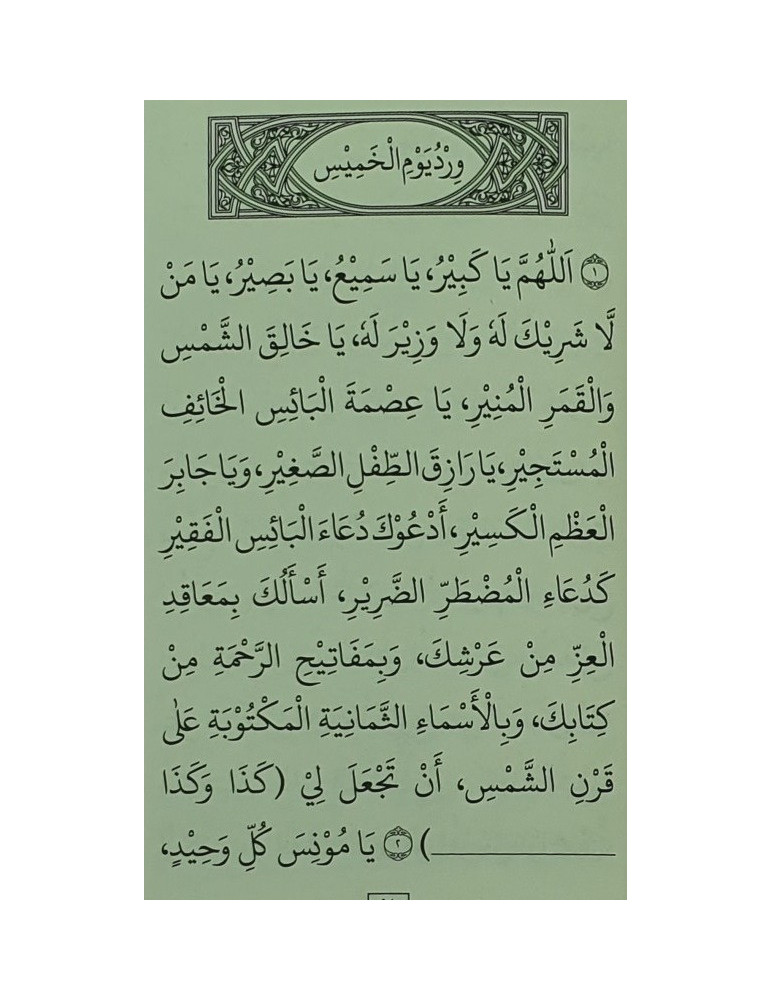 وِرْدُ يَوْمِ الْخَمِيْسِ
۞١ اَللّٰهُمَّ يَا كَبِيْرُ، يَا سَمِيْعُ، يَا بَصِيْرُ، يَا مَنْ
لَّا شَرِيْكَ لَهٗ وَلَا وَزِيْرَ لَهٗ، يَا خَالِقَ الشَّمْسِ
وَالْقَمَرِ الْمُنِيْرِ، يَا عِصْمَةَ الْبَائِسِ الْخَائِفِ
الْمُسْتَجِيْرِ، يَا رَازِقَ الطِّفْلِ الصَّغِيْرِ، وَيَا جَابِرَ
الْعَظْمِ الْكَسِيْرِ، أَدْعُوْكَ دُعَاءَ الْبَائِسِ الْفَقِيْرِ
كَدُعَاءِ الْمُضْطَرِّ الضَّرِيْرِ، أَسْأَلُكَ بِمَعَاقِدِ
الْعِزِّ مِنْ عَرْشِكَ، وَبِمَفَاتِيْحِ الرَّحْمَةِ مِنْ
كِتَابِكَ، وَبِالْأَسْمَاءِ الثَّمَانِيَةِ الْمَكْتُوْبَةِ عَلٰى
قَرْنِ الشَّمْسِ، أَنْ تَجْعَلَ لِيْ (كَذَا وَكَذَا
ــــــــــــــــ) ۞٢ يَا مُوْنِسَ كُلِّ وَحِيْدٍ،